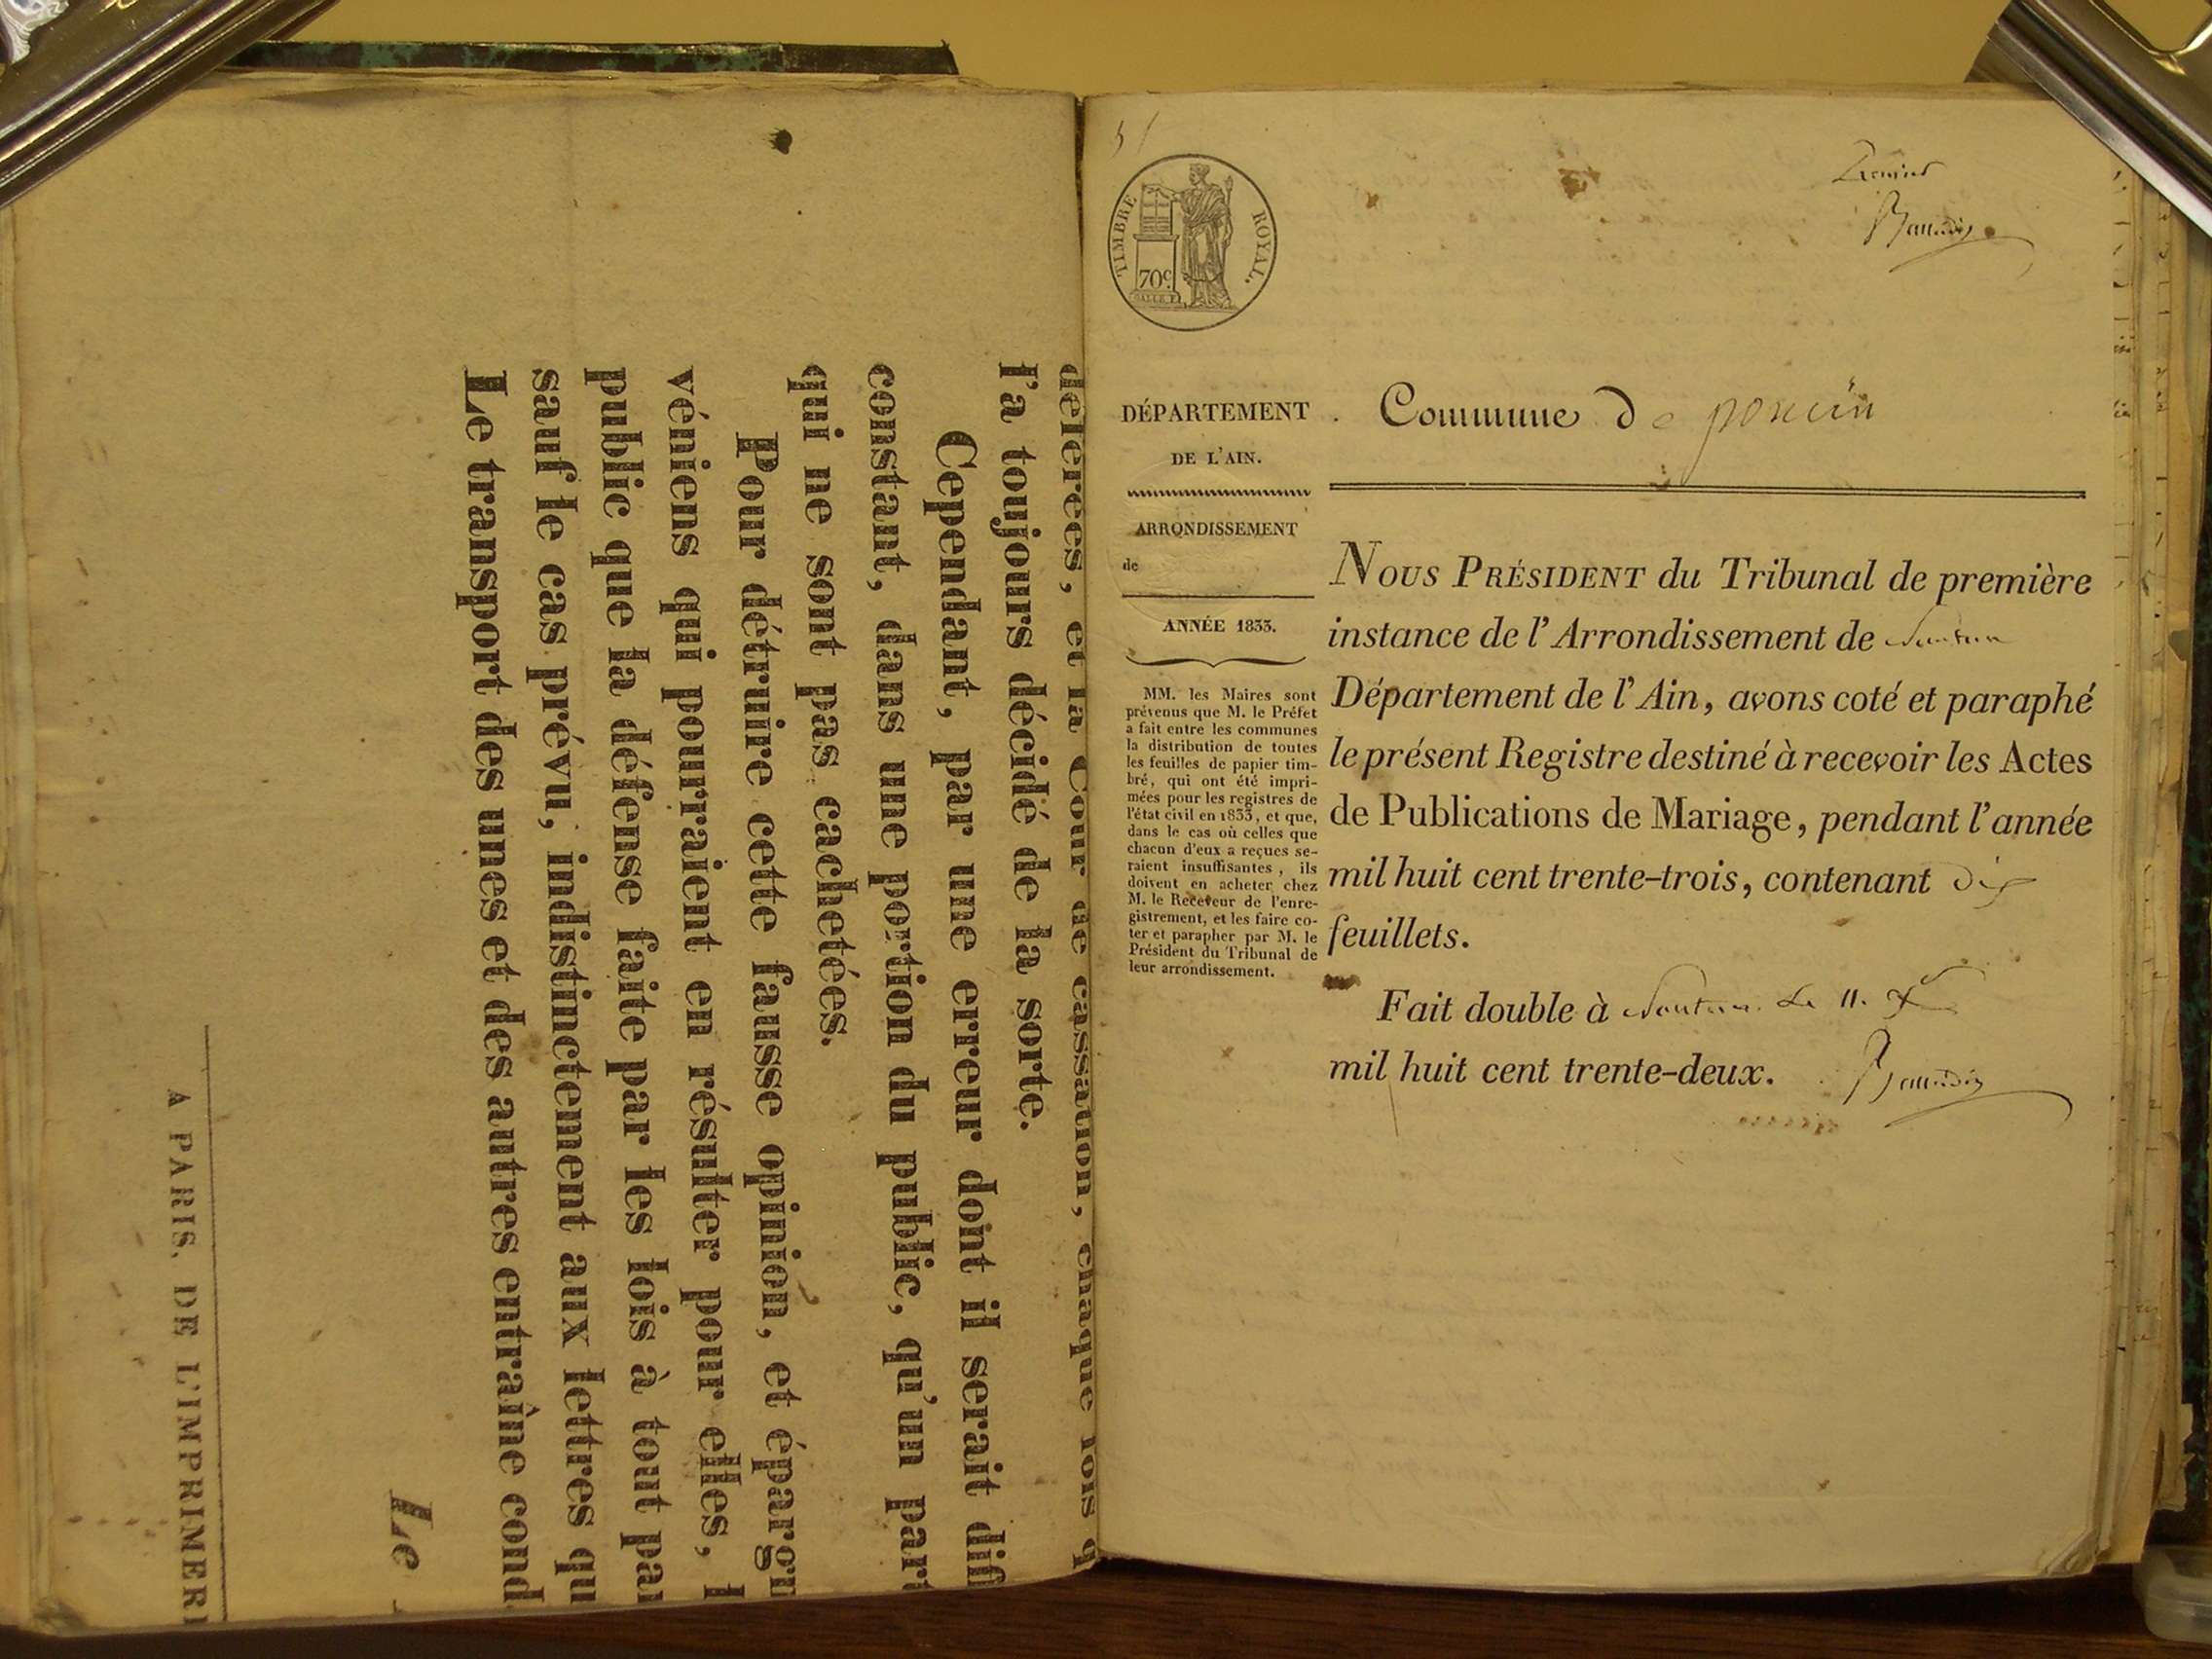 déférées, et la Cour de cassation, chaque fois q
l'a toujours décidé de la sorte.
Cependant, par une erreur dont il serait diffi
constant, dans une portion du public, qu'un part
qui ne sont pas cachetées.
Pour détruire cette fausse opinion, et épargn
véniens qui pourraient en résulter pour elles, l
public que la défense faite par les lois à tout par
sauf le cas prévu, indistinctement aux lettres qu
Le transport des unes et des autres entraîne cond
Le
A PARIS, DE L'IMPRIMERI
Premier
Baudin
TIMBRE ROYAL.
70c.
DÉPARTEMENT
DE L'AIN.
ARRONDISSEMENT
de
ANNÉE 1833.
MM. les Maires sont
prévenus que M. le Préfet
a fait entre les communes
la distribution de toutes
les feuilles de papier tim-
bré, qui ont été impri-
mées pour les registres de
l'état civil en 1833, et que,
dans le cas où celles que
chacun d'eux a reçues se-
raient insuffisantes, ils
doivent en acheter chez
M. le Receveur de l'enre-
gistrement, et les faire co-
ter et parapher par M. le
Président du Tribunal de
leur arrondissement.
Commune de poncin
NOUS PRÉSIDENT du Tribunal de première
instance de l'Arrondissement de Nantua
Département de l'Ain, avons coté et paraphé
le présent Registre destiné à recevoir les Actes
de Publications de Mariage, pendant l'année
mil huit cent trente-trois, contenant dix
feuillets.
Fait double à Nantua Le 11. Xe
mil huit cent trente-deux.
Baudin